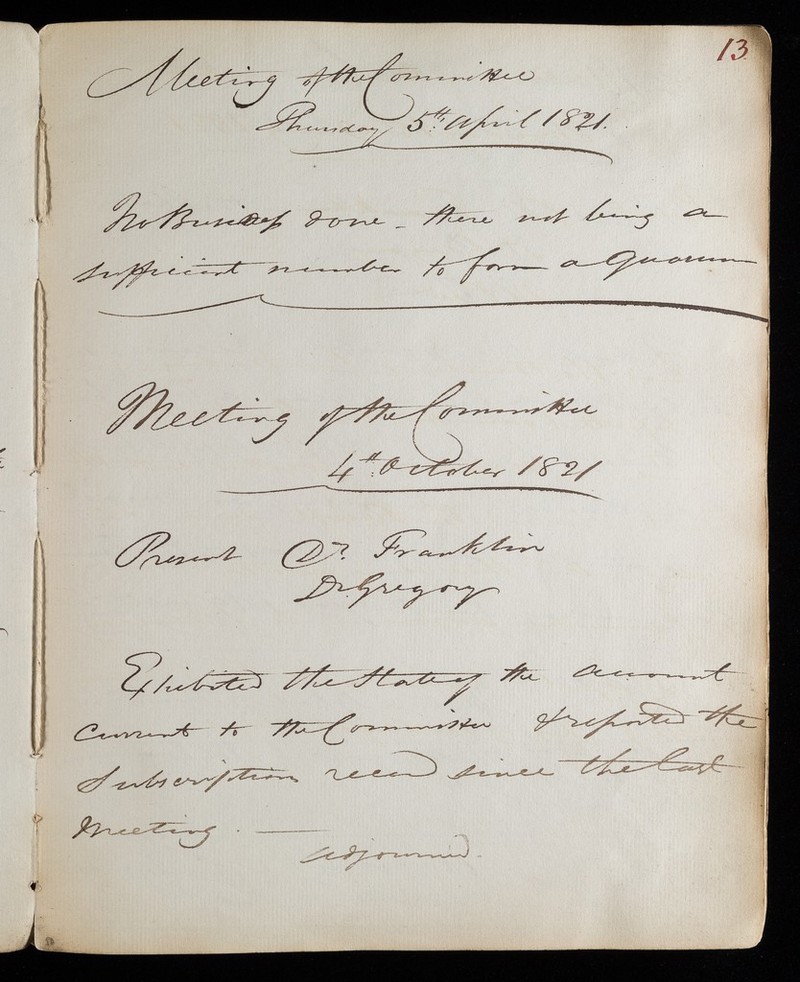 13
Meeting of the Committee
Thursday 5th April 1821.
No Business done - there not being a
sufficient number to form a Quorum
Meeting of the Committee
4th October 1821
Present Dr. Franklin
Dr. Gregory
Exhibited the State of the account
Current to the Committee & reported the
Subscriptions recd since the last
Meeting. —
adjourned.